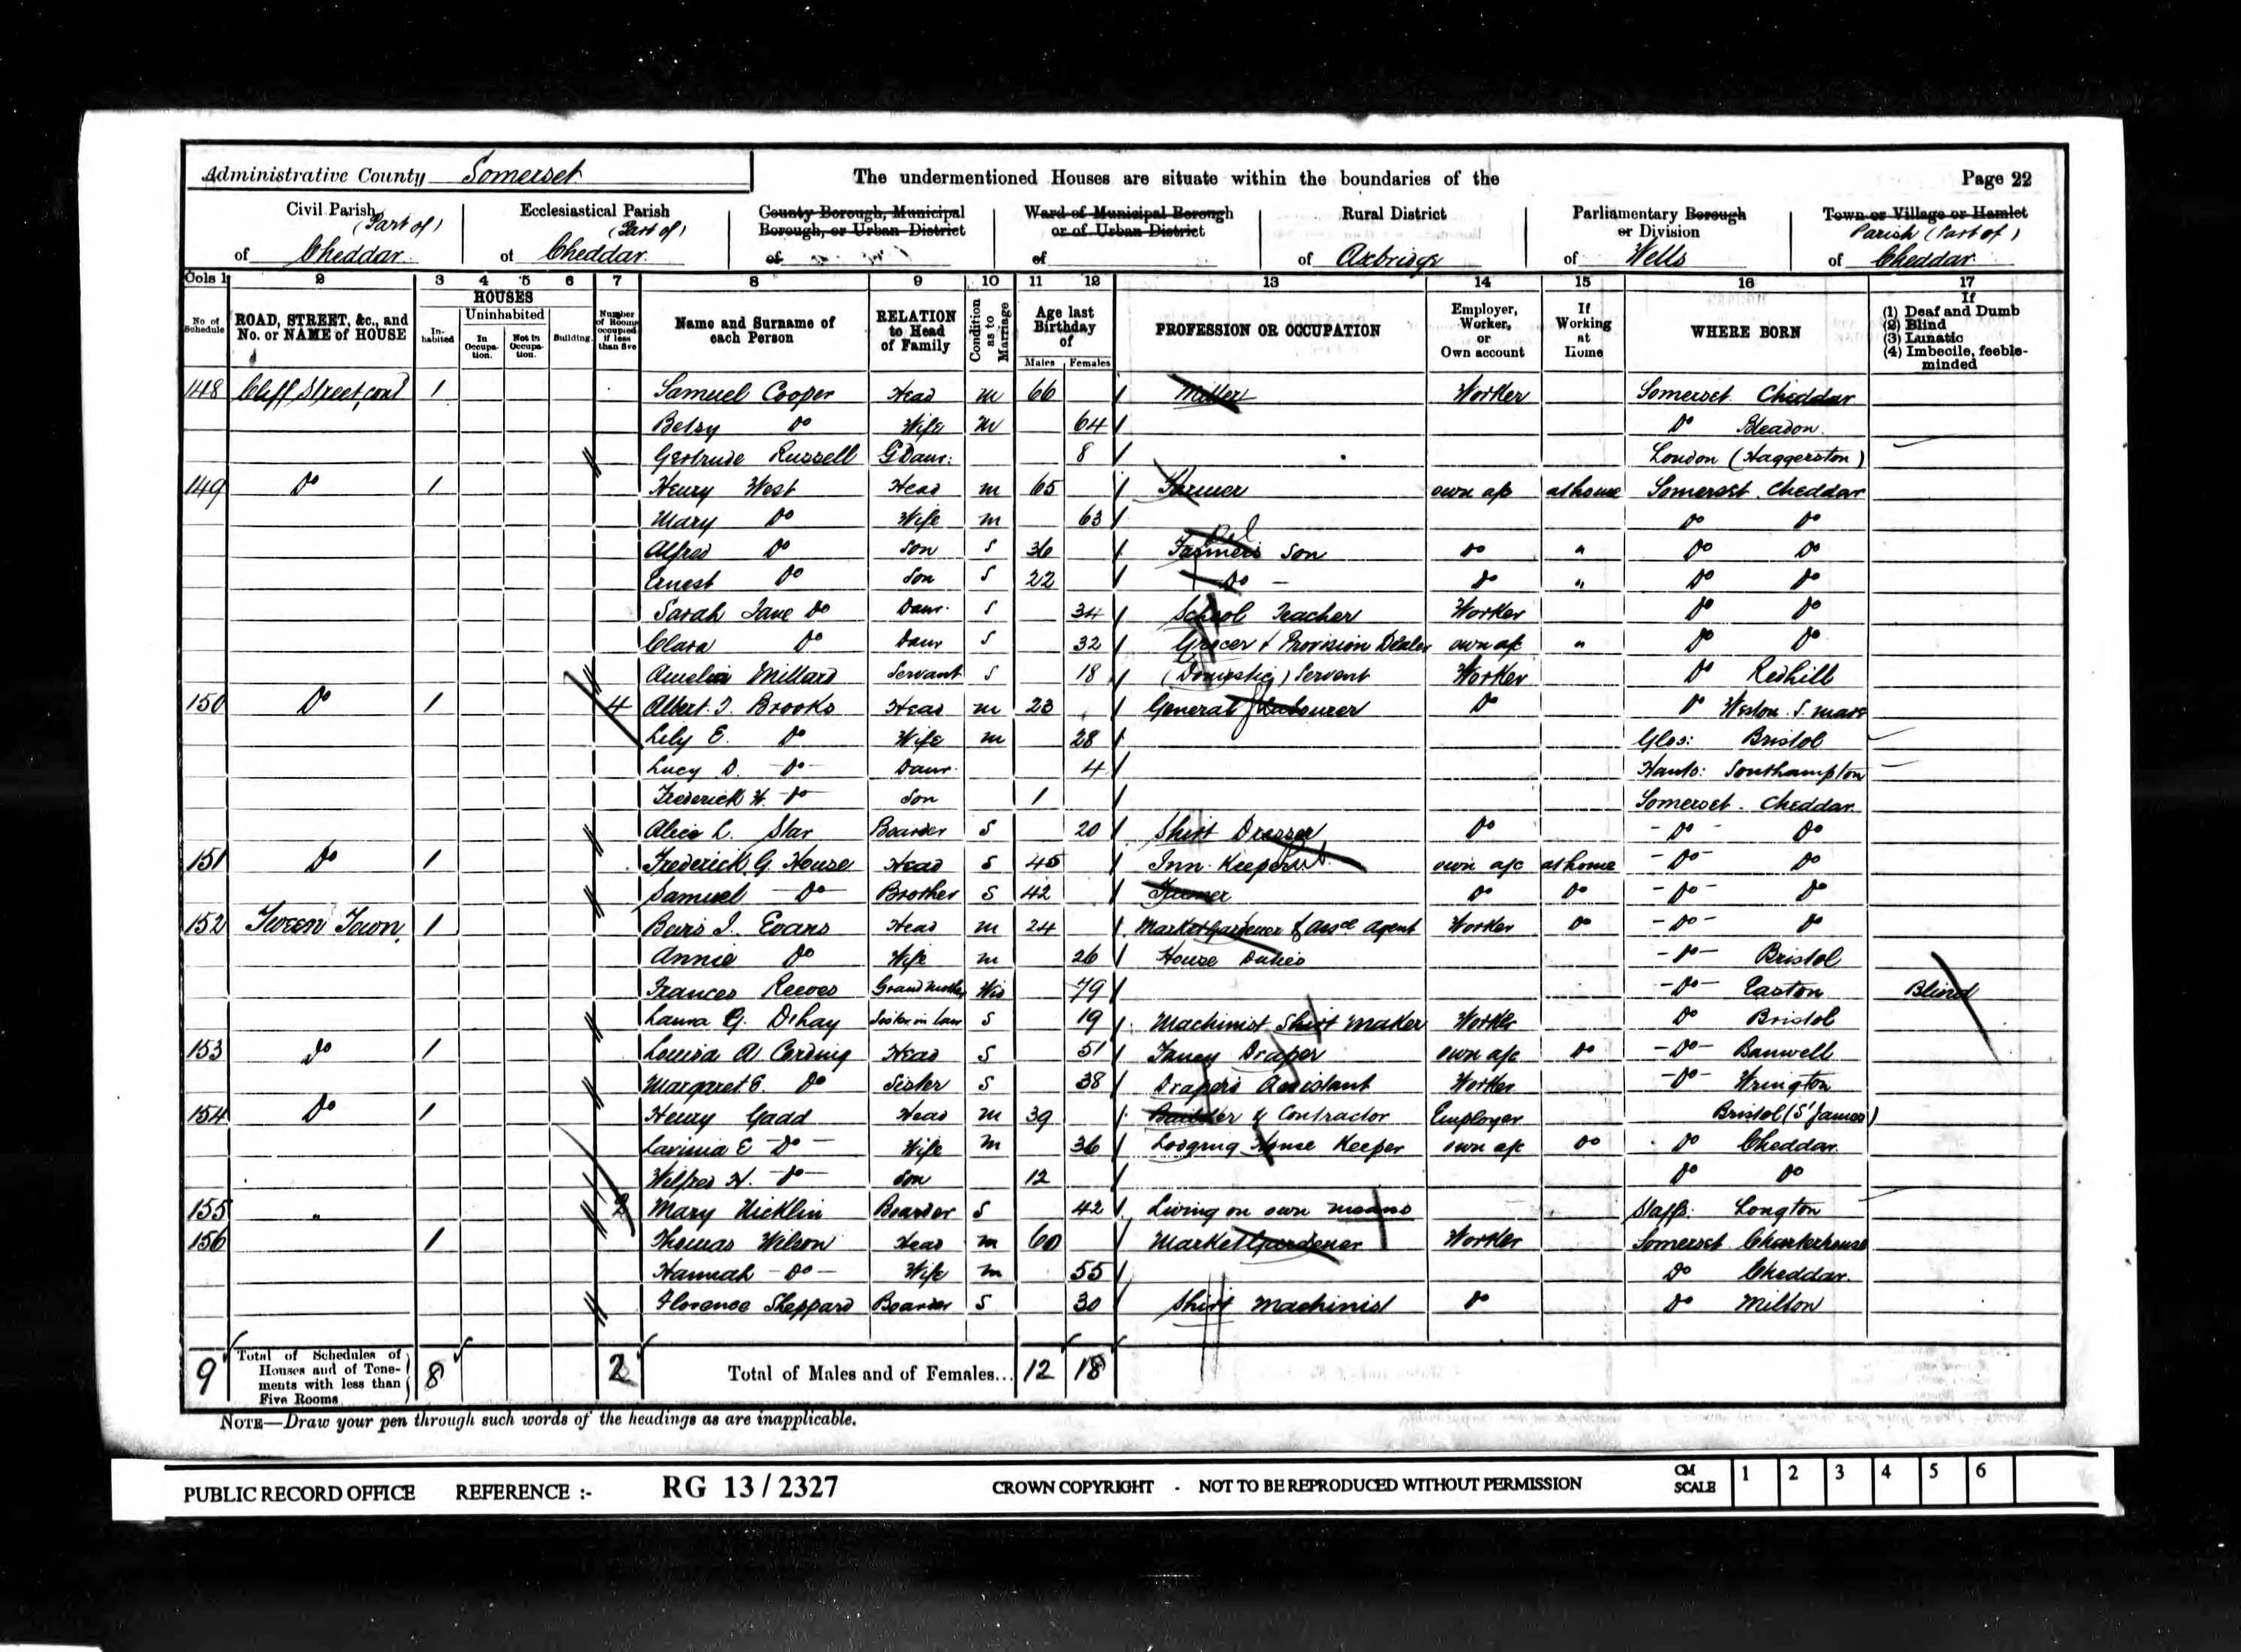 Administrative County Somerset The undermentioned Houses are situate within the boundaries of the Page 22
Civil Parish (Part of) of Cheddar
Ecclesiastical Parish (Part of) of Cheddar
County Borough, Municipal Borough, or Urban District of
Ward of Municipal Borough or of Urban District of
Rural District of Axbridge
Parliamentary Borough or Division of Wells
Town or Village or Hamlet Parish (Part of) of Cheddar
Cols 1 2 3 4 5 6 7 8 9 10 11 12 13 14 15 16 17
No of Schedule
ROAD, STREET, &c., and No. or NAME of HOUSE
HOUSES
In-habited
Uninhabited
In Occupa-tion.
Not in Occupa-tion.
Building.
Number of Rooms occupied if less than five
Name and Surname of each Person
RELATION to Head of Family
Condition as to Marriage
Age last Birthday of
Males Females
PROFESSION OR OCCUPATION
Employer, Worker, or Own account
If Working at Home
WHERE BORN
If (1) Deaf and Dumb (2) Blind (3) Lunatic (4) Imbecile, feeble-minded
148 Cliff Street cont 1 Samuel Cooper Head M 66 Miller Worker Somerset Cheddar
Betsy Do Wife M 64 Do Bleadon
Gertrude Russell G Daur: 8 London (Haggerston)
149 Do 1 Henry West Head M 65 Farmer own a/c at home Somerset Cheddar
Mary Do Wife M 63 Do Do
Alfred Do Son S 36 Farmers Son Do " Do Do
Ernest Do Son S 22 Do Do " Do Do
Sarah Jane Do Daur. S 34 School Teacher Worker Do Do
Clara Do Daur S 32 Grocer & Provision Dealer own a/c " Do Do
Amelia Millard Servant S 18 (Domestic) Servant Worker Do Redhill
150 Do 1 4 Albert. J. Brooks Head M 23 General Labourer Do Do Weston. S. Mare
Lily E. Do Wife M 28 Glos: Bristol
Lucy D. Do Daur. 4 Hants: Southampton
Frederick W. Do Son 1 Somerset. Cheddar.
Alice L. Star Boarder S 20 Shirt Dresser Do Do Do
151 Do 1 Frederick G. House Head S 45 Inn-Keeper own a/c at home Do Do
Samuel Do Brother S 42 Farmer Do Do Do Do
152 Tween Town 1 Bevis J. Evans Head M 24 Market Gardener & Assce Agent Worker Do Do Do
Annie Do Wife M 26 House Duties Do Bristol
Frances Reeves Grand Mother Wid 79 Do Easton Blind
Laura G. Dehay Sister in law S 19 Machinist Shirt Maker Worker Do Bristol
153 Do 1 Louisa A Cording Head S 51 Fancy Draper own a/c Do Do Banwell
Margaret E. Do Sister S 38 Drapers Assistant Worker Do Wrington
154 Do 1 Henry Gadd Head M 39 Builder & Contractor Employer Bristol (St James)
Lavinia E Do Wife M 36 Lodging House Keeper own a/c Do Do Cheddar.
Wilfred H. Do Son 12 Do Do
155 " 2 Mary Nicklin Boarder S 42 Living on own means Staffs. Longton
156 1 Thomas Wilson Head M 60 Market Gardener Worker Somerset Charterhouse
Hannah Do Wife M 55 Do Cheddar.
Florence Sheppard Boarder S 30 Shirt Machinist Do Do Milton
9 Total of Schedules of Houses and of Tene-ments with less than Five Rooms 8 2 Total of Males and of Females... 12 18
NOTE—Draw your pen through such words of the headings as are inapplicable.
PUBLIC RECORD OFFICE REFERENCE :- RG 13 / 2327 CROWN COPYRIGHT - NOT TO BE REPRODUCED WITHOUT PERMISSION CM SCALE 1 2 3 4 5 6